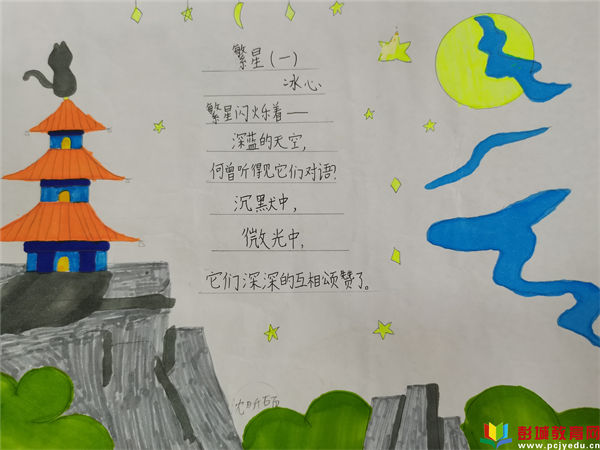 繁星(一)
冰心
繁星闪烁着——
深蓝的天空,
何曾听得见它们对语?
沉默中,
微光中,
它们深深的互相颂赞了。
彭城教育网
www.pcjyedu.cn